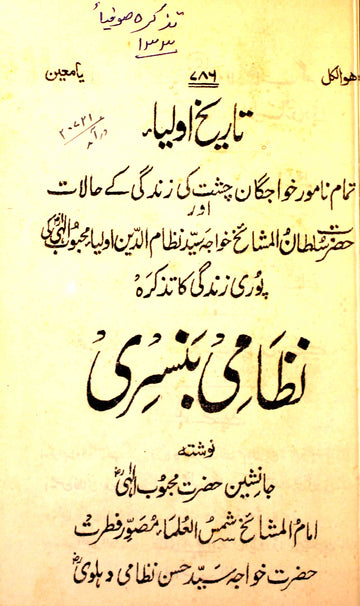 تذکرہ صوفیا
۱۳۳
ھوالکل ۷۸۶ یا معین
تاریخ اولیاء
۲۰۷۲۱
تمام نامور خواجگان چشت کی زندگی کے حالات
اور
حضرت سلطان المشائخ خواجہ سید نظام الدین اولیاء محبوب الٰہی کی
پوری زندگی کا تذکرہ
نظامی بنسری
نوشتہ
جانشین حضرت محبوب الٰہیؒ
امام المشائخ شمس العلماء مصور فطرت
حضرت خواجہ سید حسن نظامی دہلویؒ